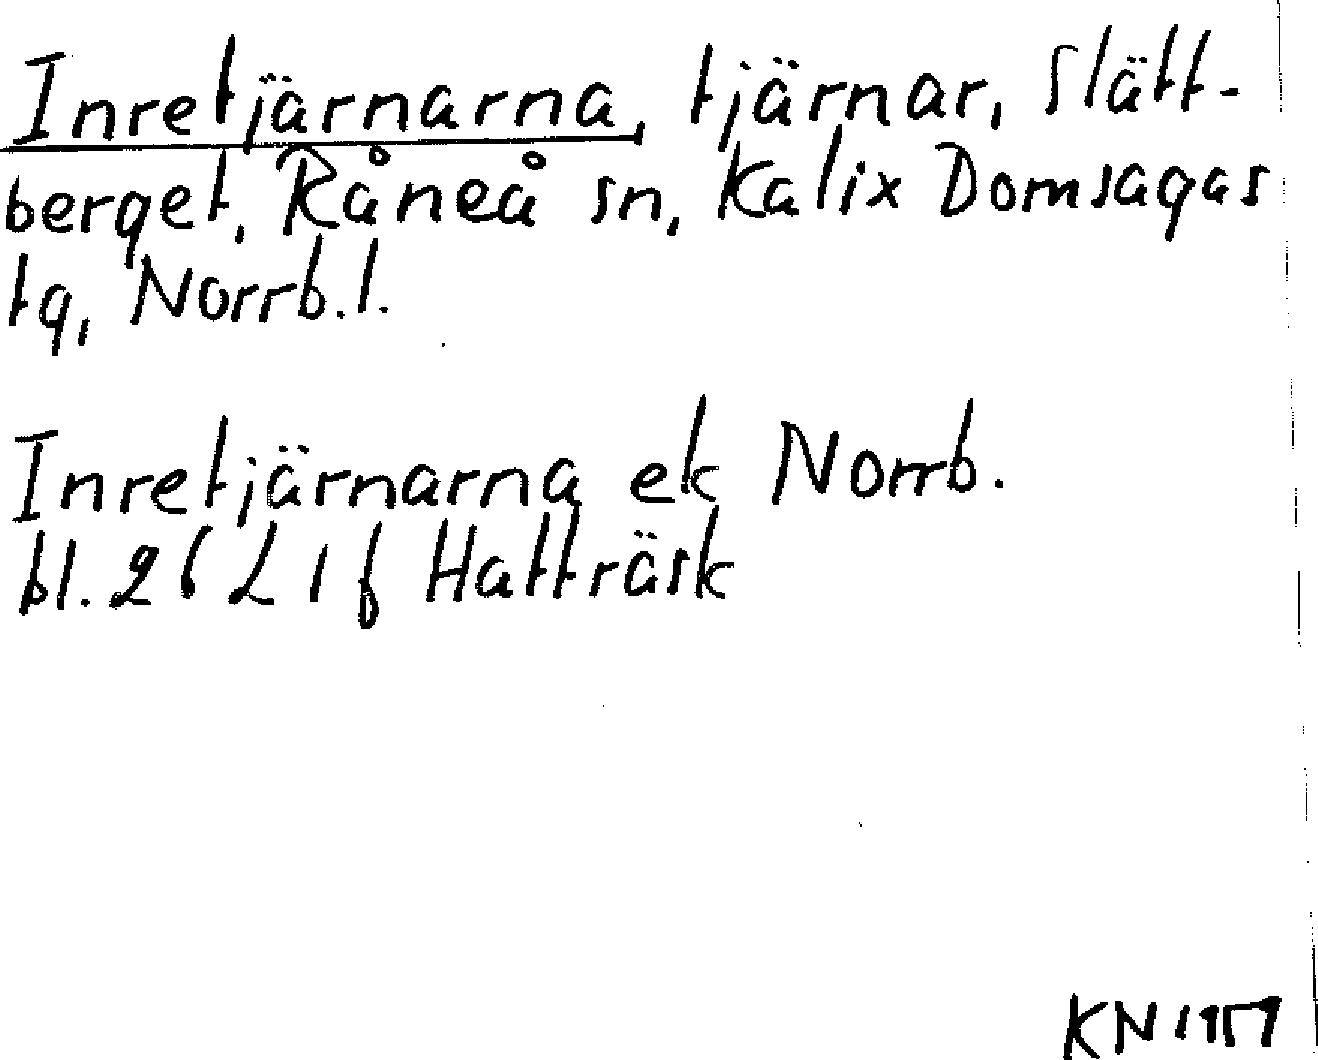 Inretjärnarna, tjärnar, Slätt-
berget, Råneå sn, Kalix Domsagas
tg, Norrb.l.
Inretjärnarna ek Norrb.
bl. 26 L 1 f Hatträsk
KN